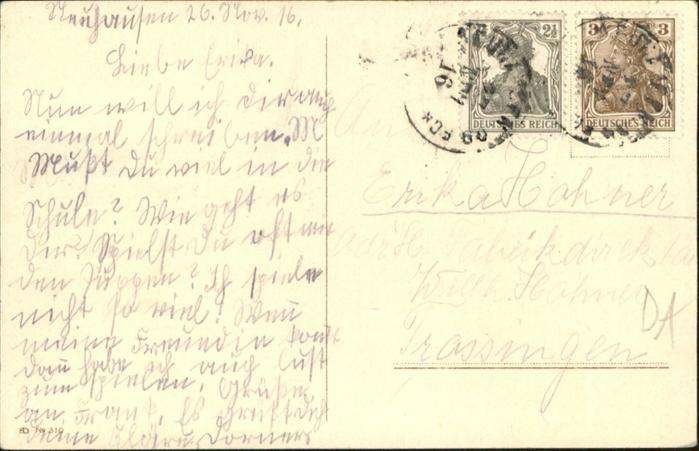 Neuhausen 26. Nov. 16.
Liebe Erika.
Nun will ich dir auch
einmal schreiben. M
Mußt Du viel in die
Schule? Wie geht es
Dir. Spielst Du oft mit
den Puppen? Ich spiele
nicht so viel! Wenn
meine Freundin kommt
dann habe ich auch Lust
zum spielen. Grüße
an Franz. Es grüßt dich
deine Dorner
2½ 2½
DEUTSCHES REICH
3 3
DEUTSCHES REICH
An
Erika Hohner
Adr. H. Fabrikdirektor
Wilh. Hohner
Trossingen
DA